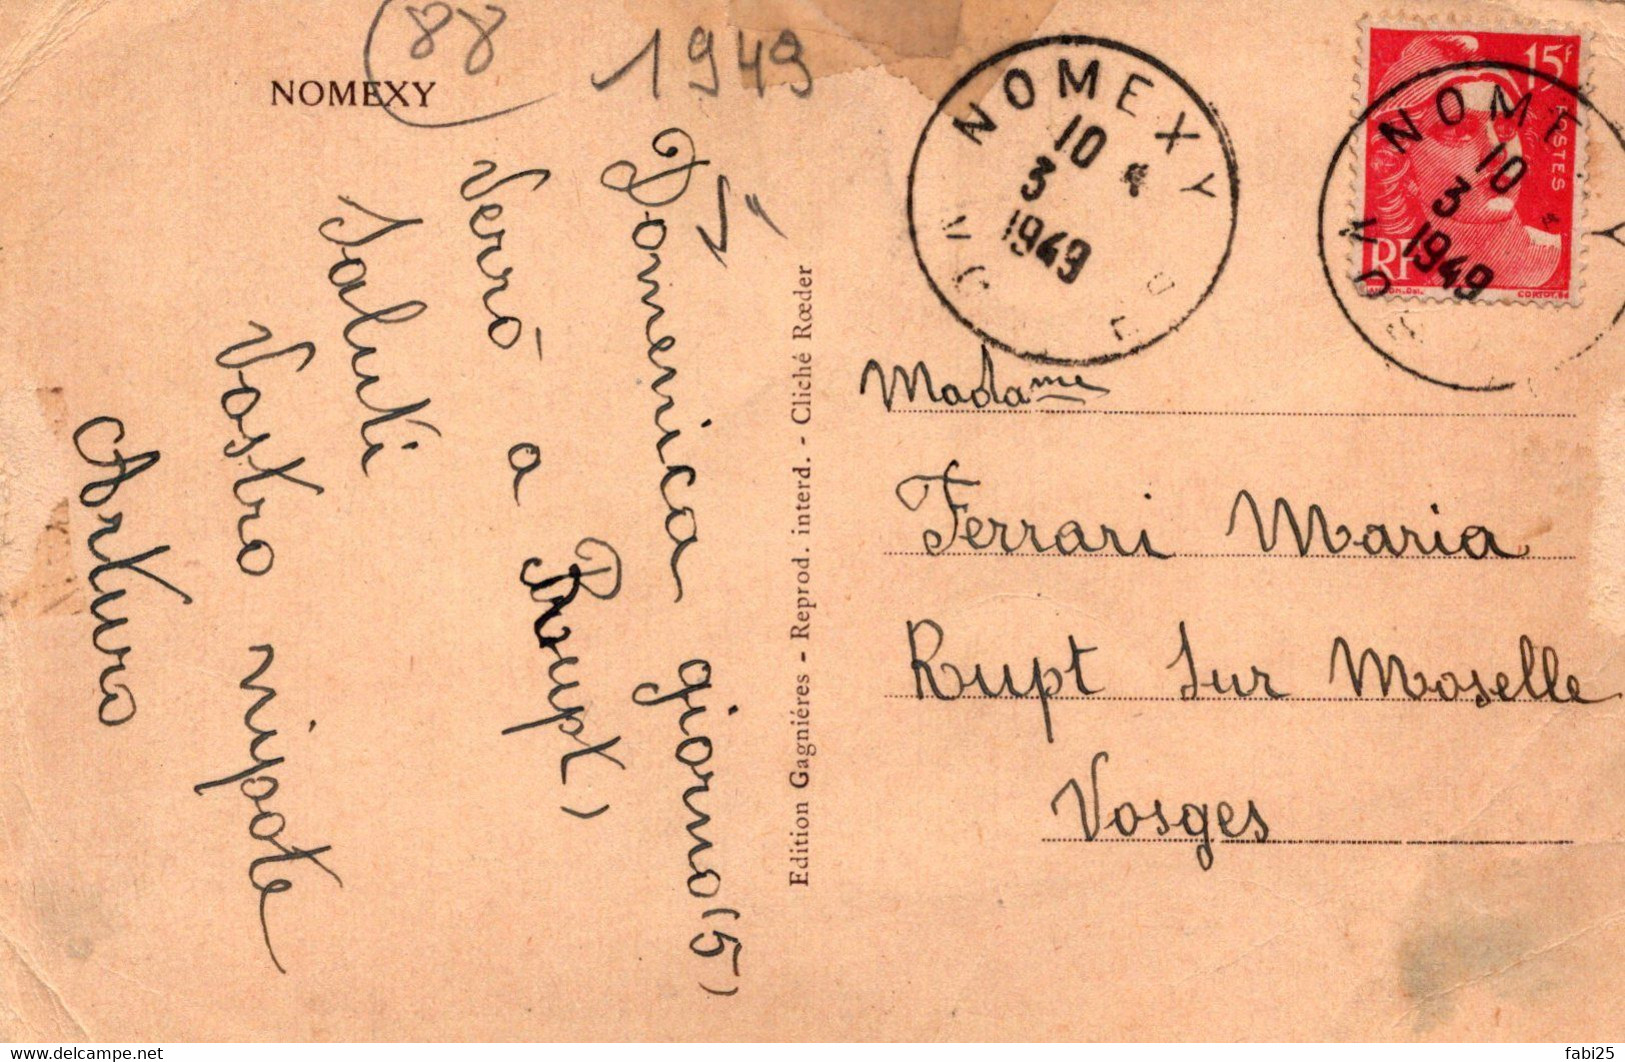 NOMEXY
88
1949
Domenica giorno (5)
Verró a Rupt)
Saluti
Vostro nipote
Arturo
Edition Gagniéres - Reprod. interd. - Cliché Rœder
NOMEXY
10
3
1949
15F
POSTES
RF
CORTOT. Sc
NOME Y
10
3
1949
Madame
Ferrari Maria
Rupt Sur Moselle
Vosges
fabi25